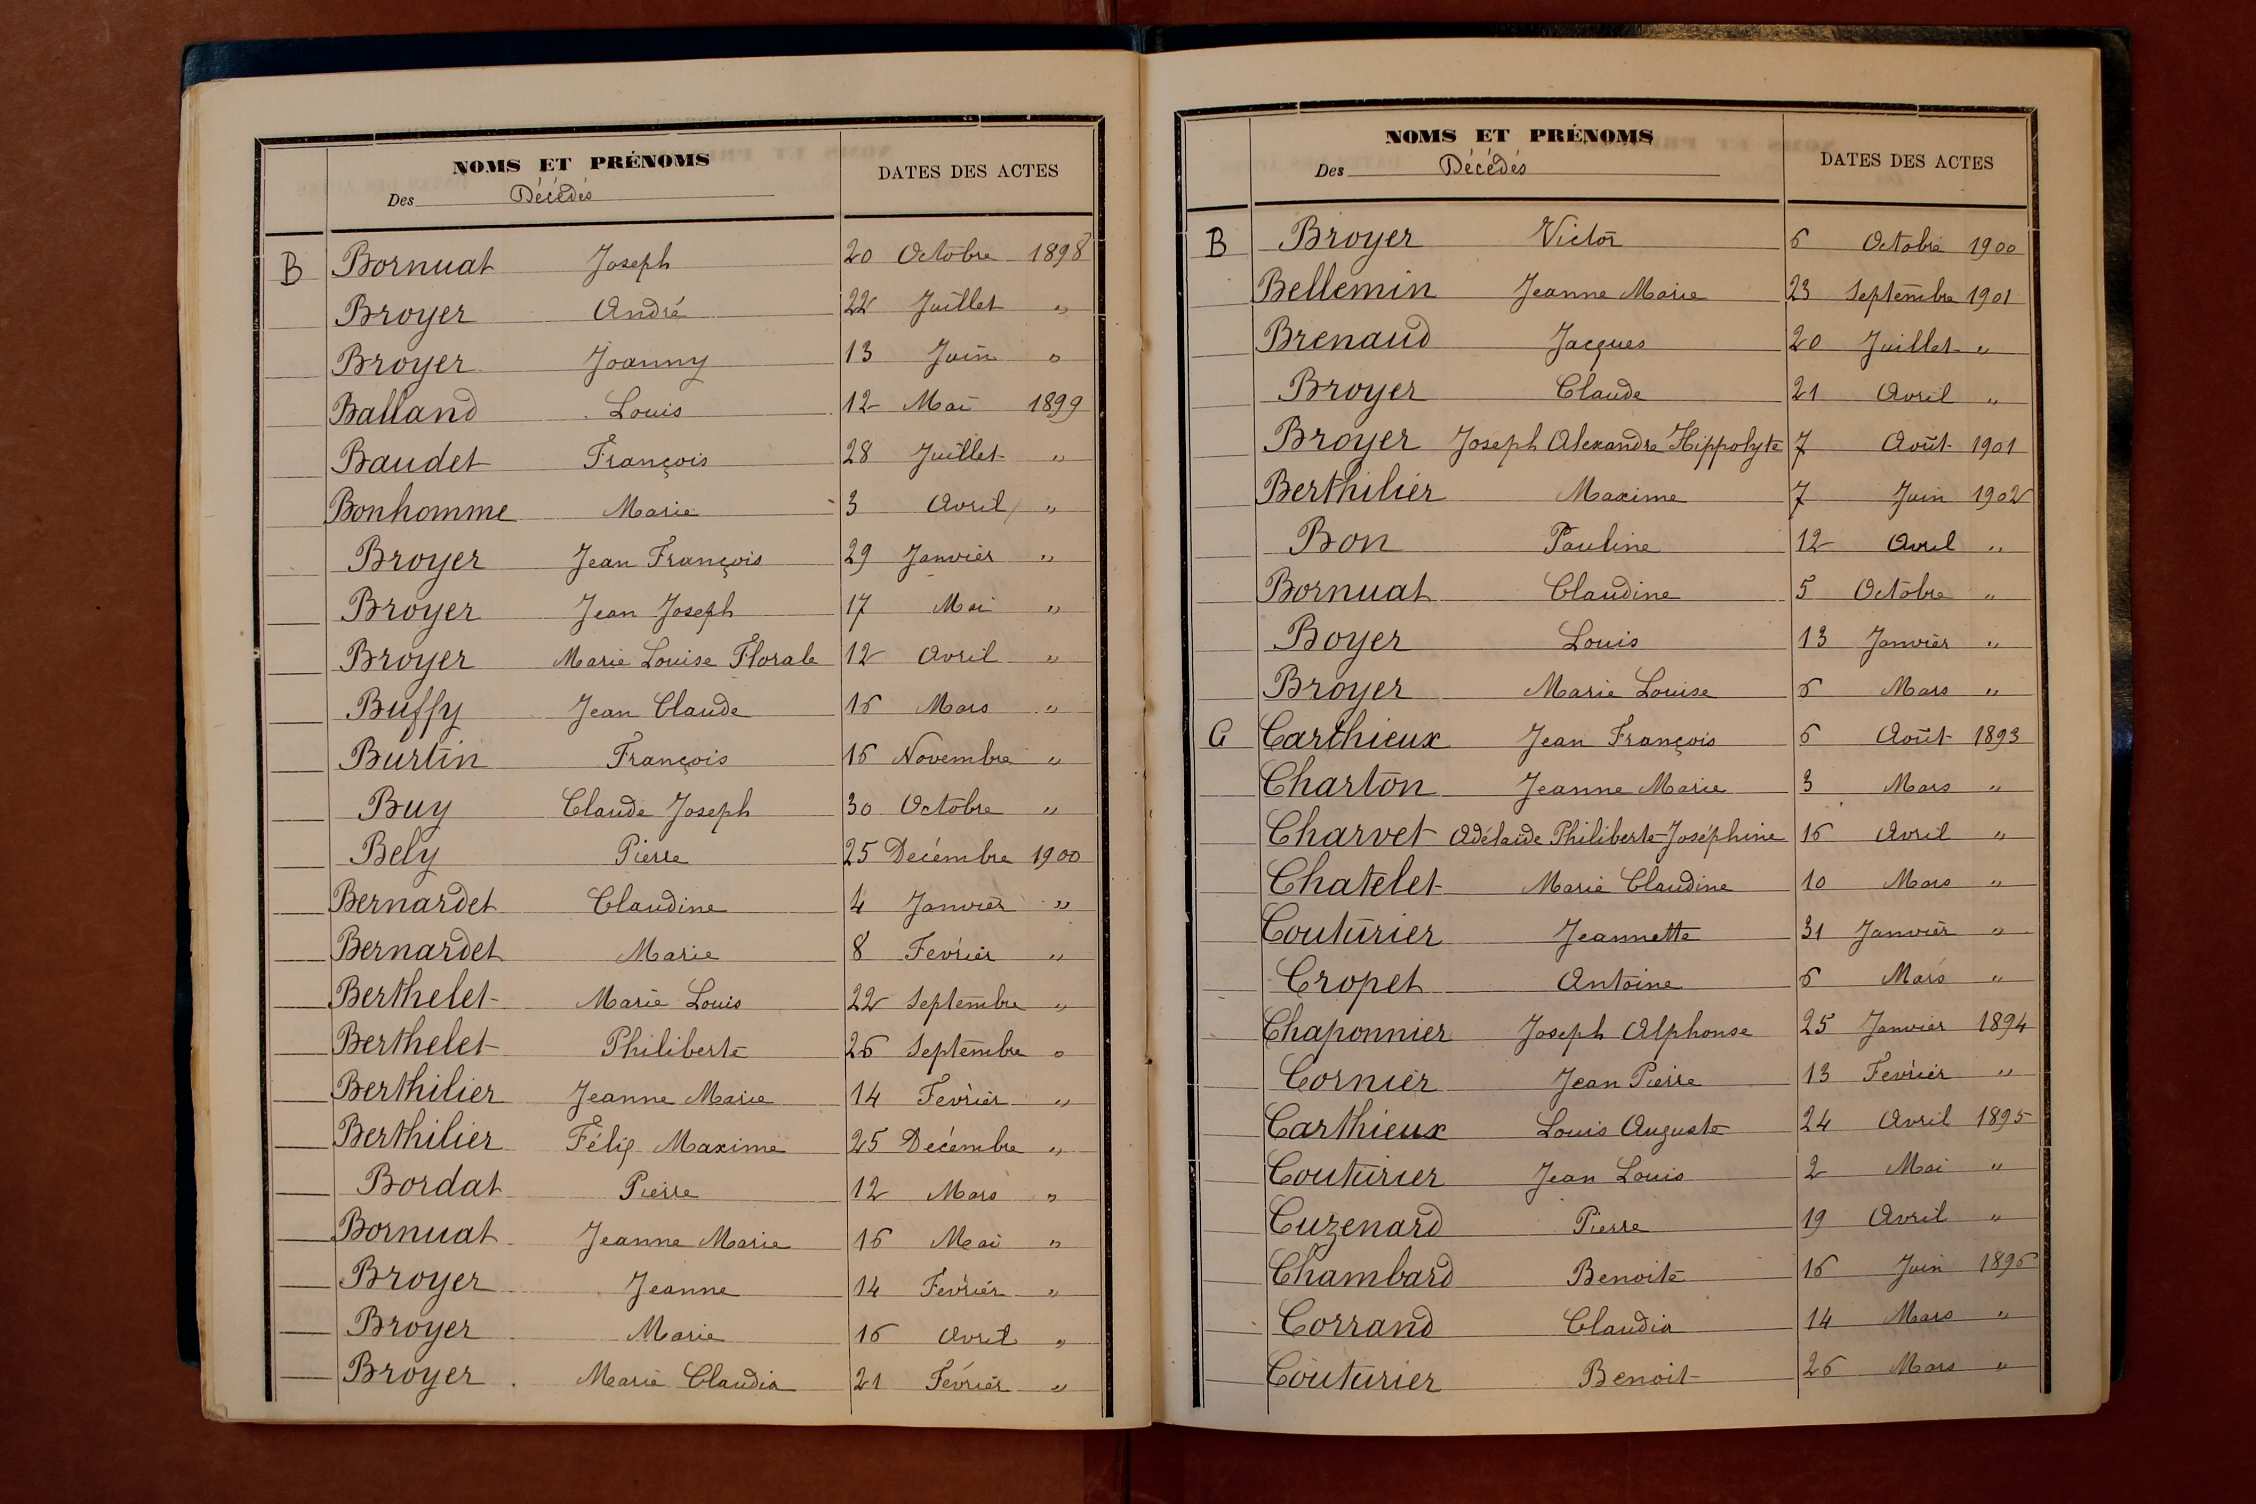 NOMS ET PRÉNOMS
Des Décédés
DATES DES ACTES
B Bornuat Joseph 20 Octobre 1898
Broyer André 22 Juillet "
Broyer Joanny 13 Juin "
Balland Louis 12 Mai 1899
Baudet François 28 Juillet "
Bonhomme Marie 3 Avril "
Broyer Jean François 29 Janvier "
Broyer Jean Joseph 17 Mai "
Broyer Marie Louise Florale 12 Avril "
Buffy Jean Claude 16 Mars "
Burtin François 16 Novembre "
Buy Claude Joseph 30 Octobre "
Bely Pierre 25 Décembre 1900
Bernardet Claudine 4 Janvier "
Bernardet Marie 8 Février "
Berthelet Marie Louis 22 Septembre "
Berthelet Philiberte 26 Septembre "
Berthilier Jeanne Marie 14 Février "
Berthilier Félix Maxime 25 Décembre "
Bordat Pierre 12 Mars "
Bornuat Jeanne Marie 16 Mai "
Broyer Jeanne 14 Février "
Broyer Marie 16 Avril "
Broyer Marie Claudia 21 Février "
NOMS ET PRÉNOMS
Des Décédés
DATES DES ACTES
B Broyer Victor 6 Octobre 1900
Bellemin Jeanne Marie 23 Septembre 1901
Brenaud Jacques 20 Juillet "
Broyer Claude 21 Avril "
Broyer Joseph Alexandre Hippolyte 7 Août 1901
Berthilier Maxime 7 Juin 1902
Bon Pauline 12 Avril "
Bornuat Claudine 5 Octobre "
Boyer Louis 13 Janvier "
Broyer Marie Louise 6 Mars "
C Carthieux Jean François 6 Août 1893
Charton Jeanne Marie 3 Mars "
Charvet Adélaïde Philiberte-Joséphine 16 Avril "
Chatelet Marie Claudine 10 Mars "
Couturier Jeannette 31 Janvier "
Cropet Antoine 6 Mars "
Chaponnier Joseph Alphonse 25 Janvier 1894
Cornier Jean Pierre 13 Février "
Carthieux Louis Auguste 24 Avril 1895
Couturier Jean Louis 2 Mai "
Cuzenard Pierre 19 Avril "
Chambard Benoite 16 Juin 1896
Corrand Claudia 14 Mars "
Couturier Benoit 26 Mars "